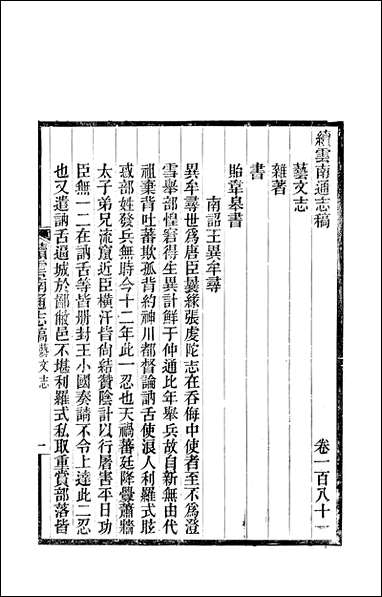 續雲南通志稿
卷一百八十一
藝文志
雜著
書
貽韋皋書
南詔王異牟尋
異牟尋世為唐臣曩緣張虔陀志在吞侮中使者至不為澄
雪舉部惶窘得生異計鮮于仲通比年舉兵故自新無由代
祖棄背吐蕃欺孤背約神川都督論訥舌使浪人利羅式眩
惑部姓發兵無時今十二年此一忍也天禍蕃廷降釁蕭牆
太子弟兄流竄近臣橫汙皆尚結贊陰計以行屠害平日功
臣無一二在訥舌等皆册封王小國奏請不令上達此二忍
也又遣訥舌逼城於鄙敝邑不堪利羅式私取重賞部落皆
續雲南通志稿
藝文志
一